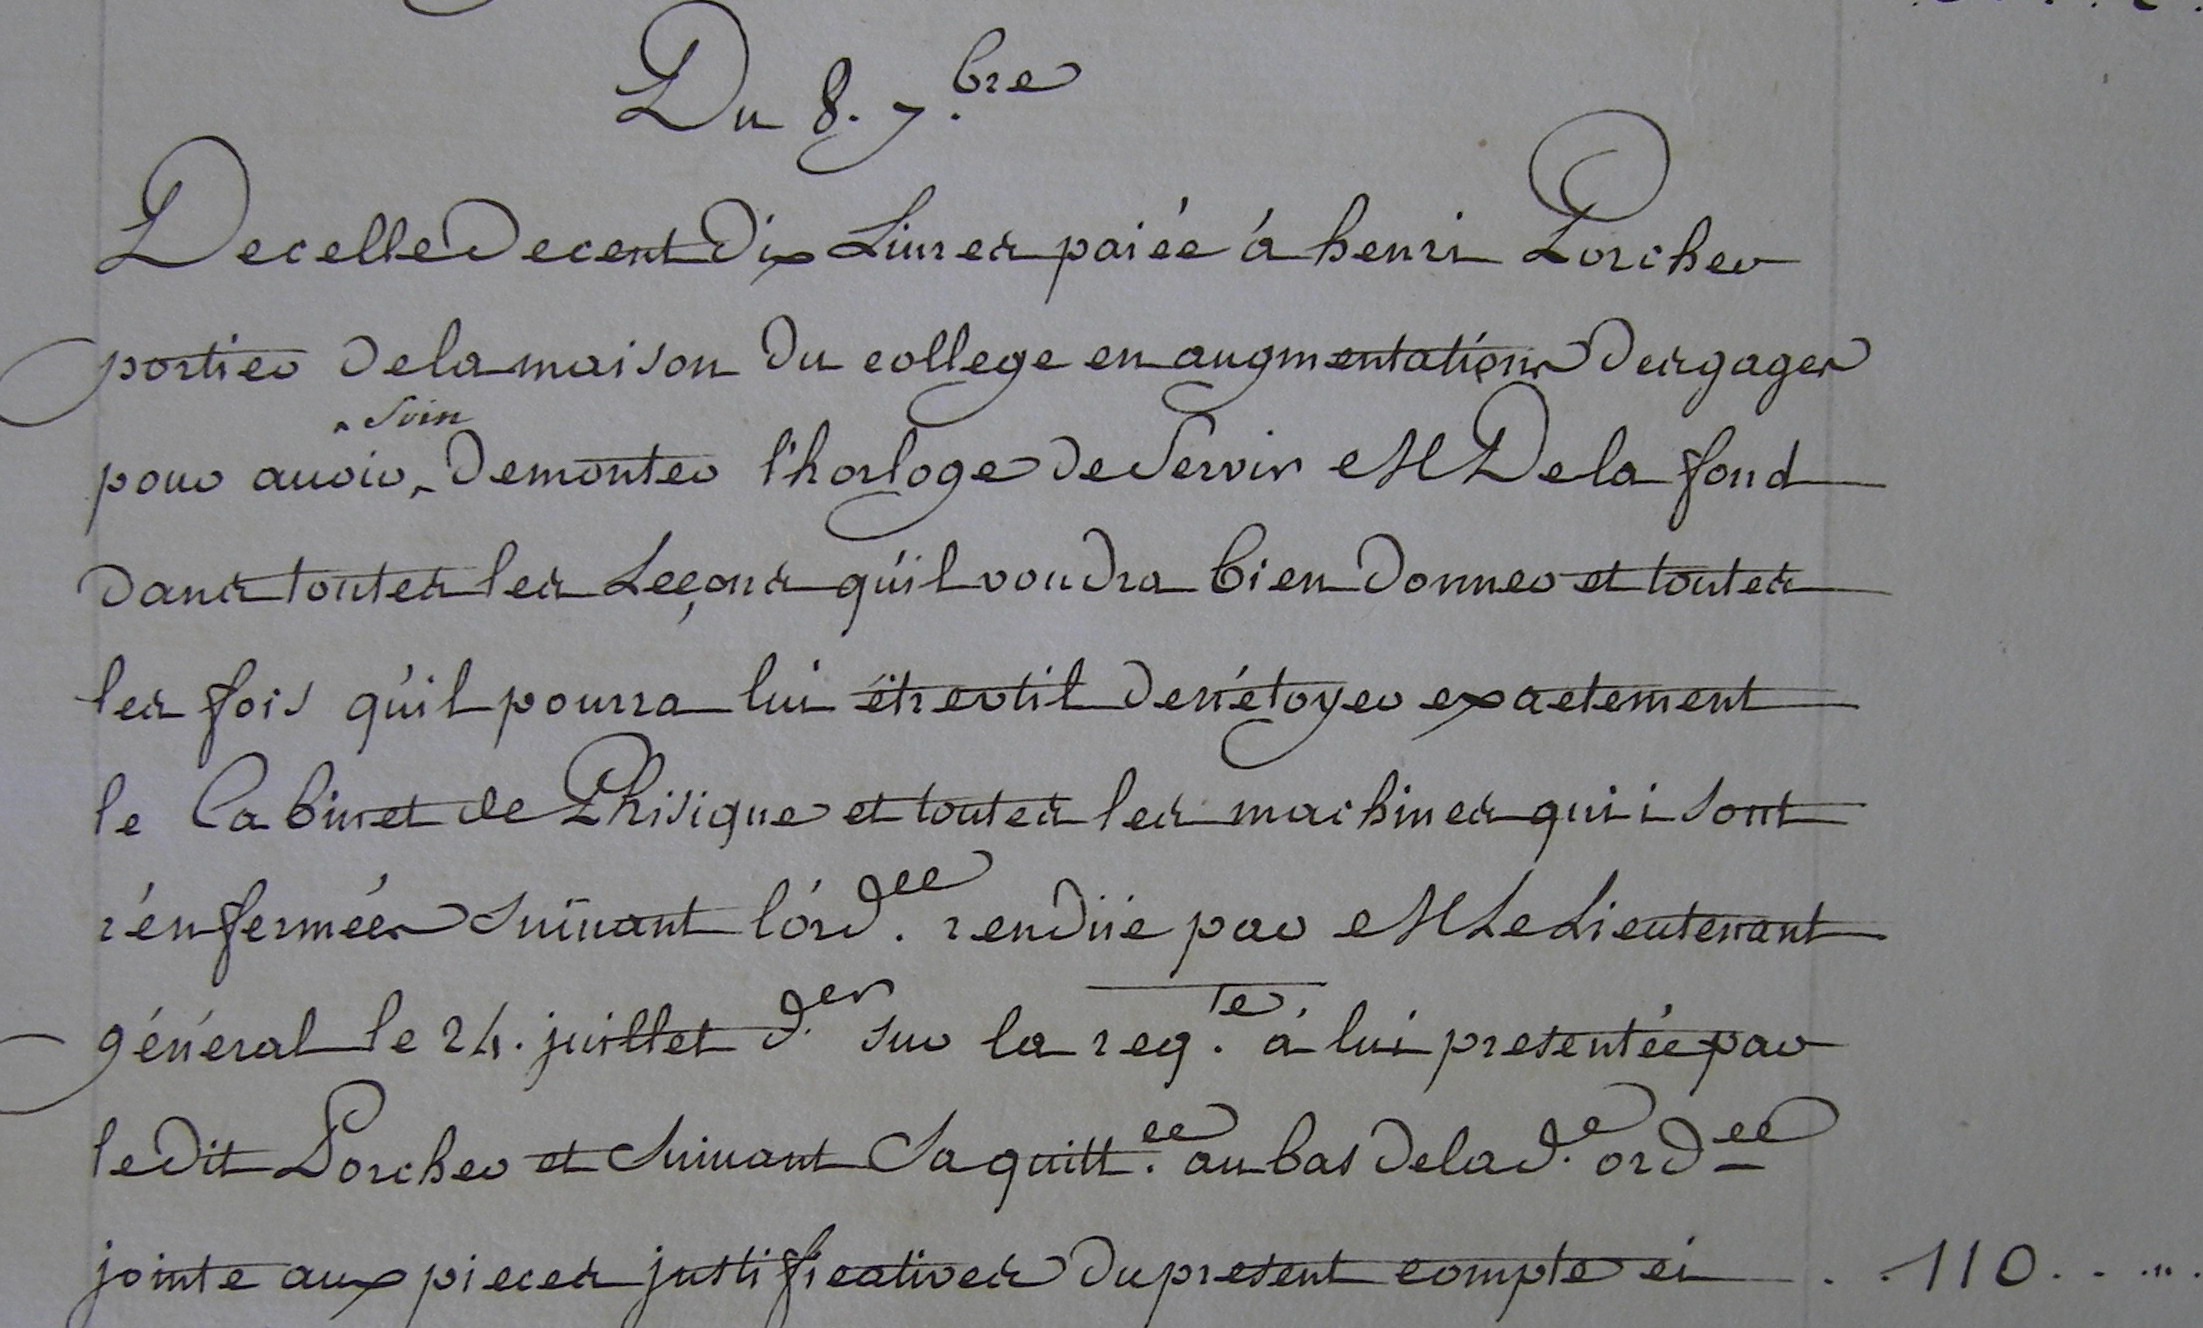 Du 8. 7.bre
De celle de cent dix Livres paiée à henri Porcher
portier de la maison du college en augmentation des gages
soin
pour avoir de monter l'horloge de servir M De la fond
dans toutes les Leçons qu'il voudra bien donner et toutes
les fois qu'il pourra lui être util de nétoyer exactement
le Cabinet de Phisique et toutes les machines qui i sont
rénfermées suivant l'ord.ce rendüe par M Le Lieutenant
général le 24. juillet d.er sur la req.te à lui presentée par
ledit Porcher et suivant sa quitt.ce au bas de la d.e ord.ce
jointe aux pieces justificatives du present compte ci . . 110. . . ...